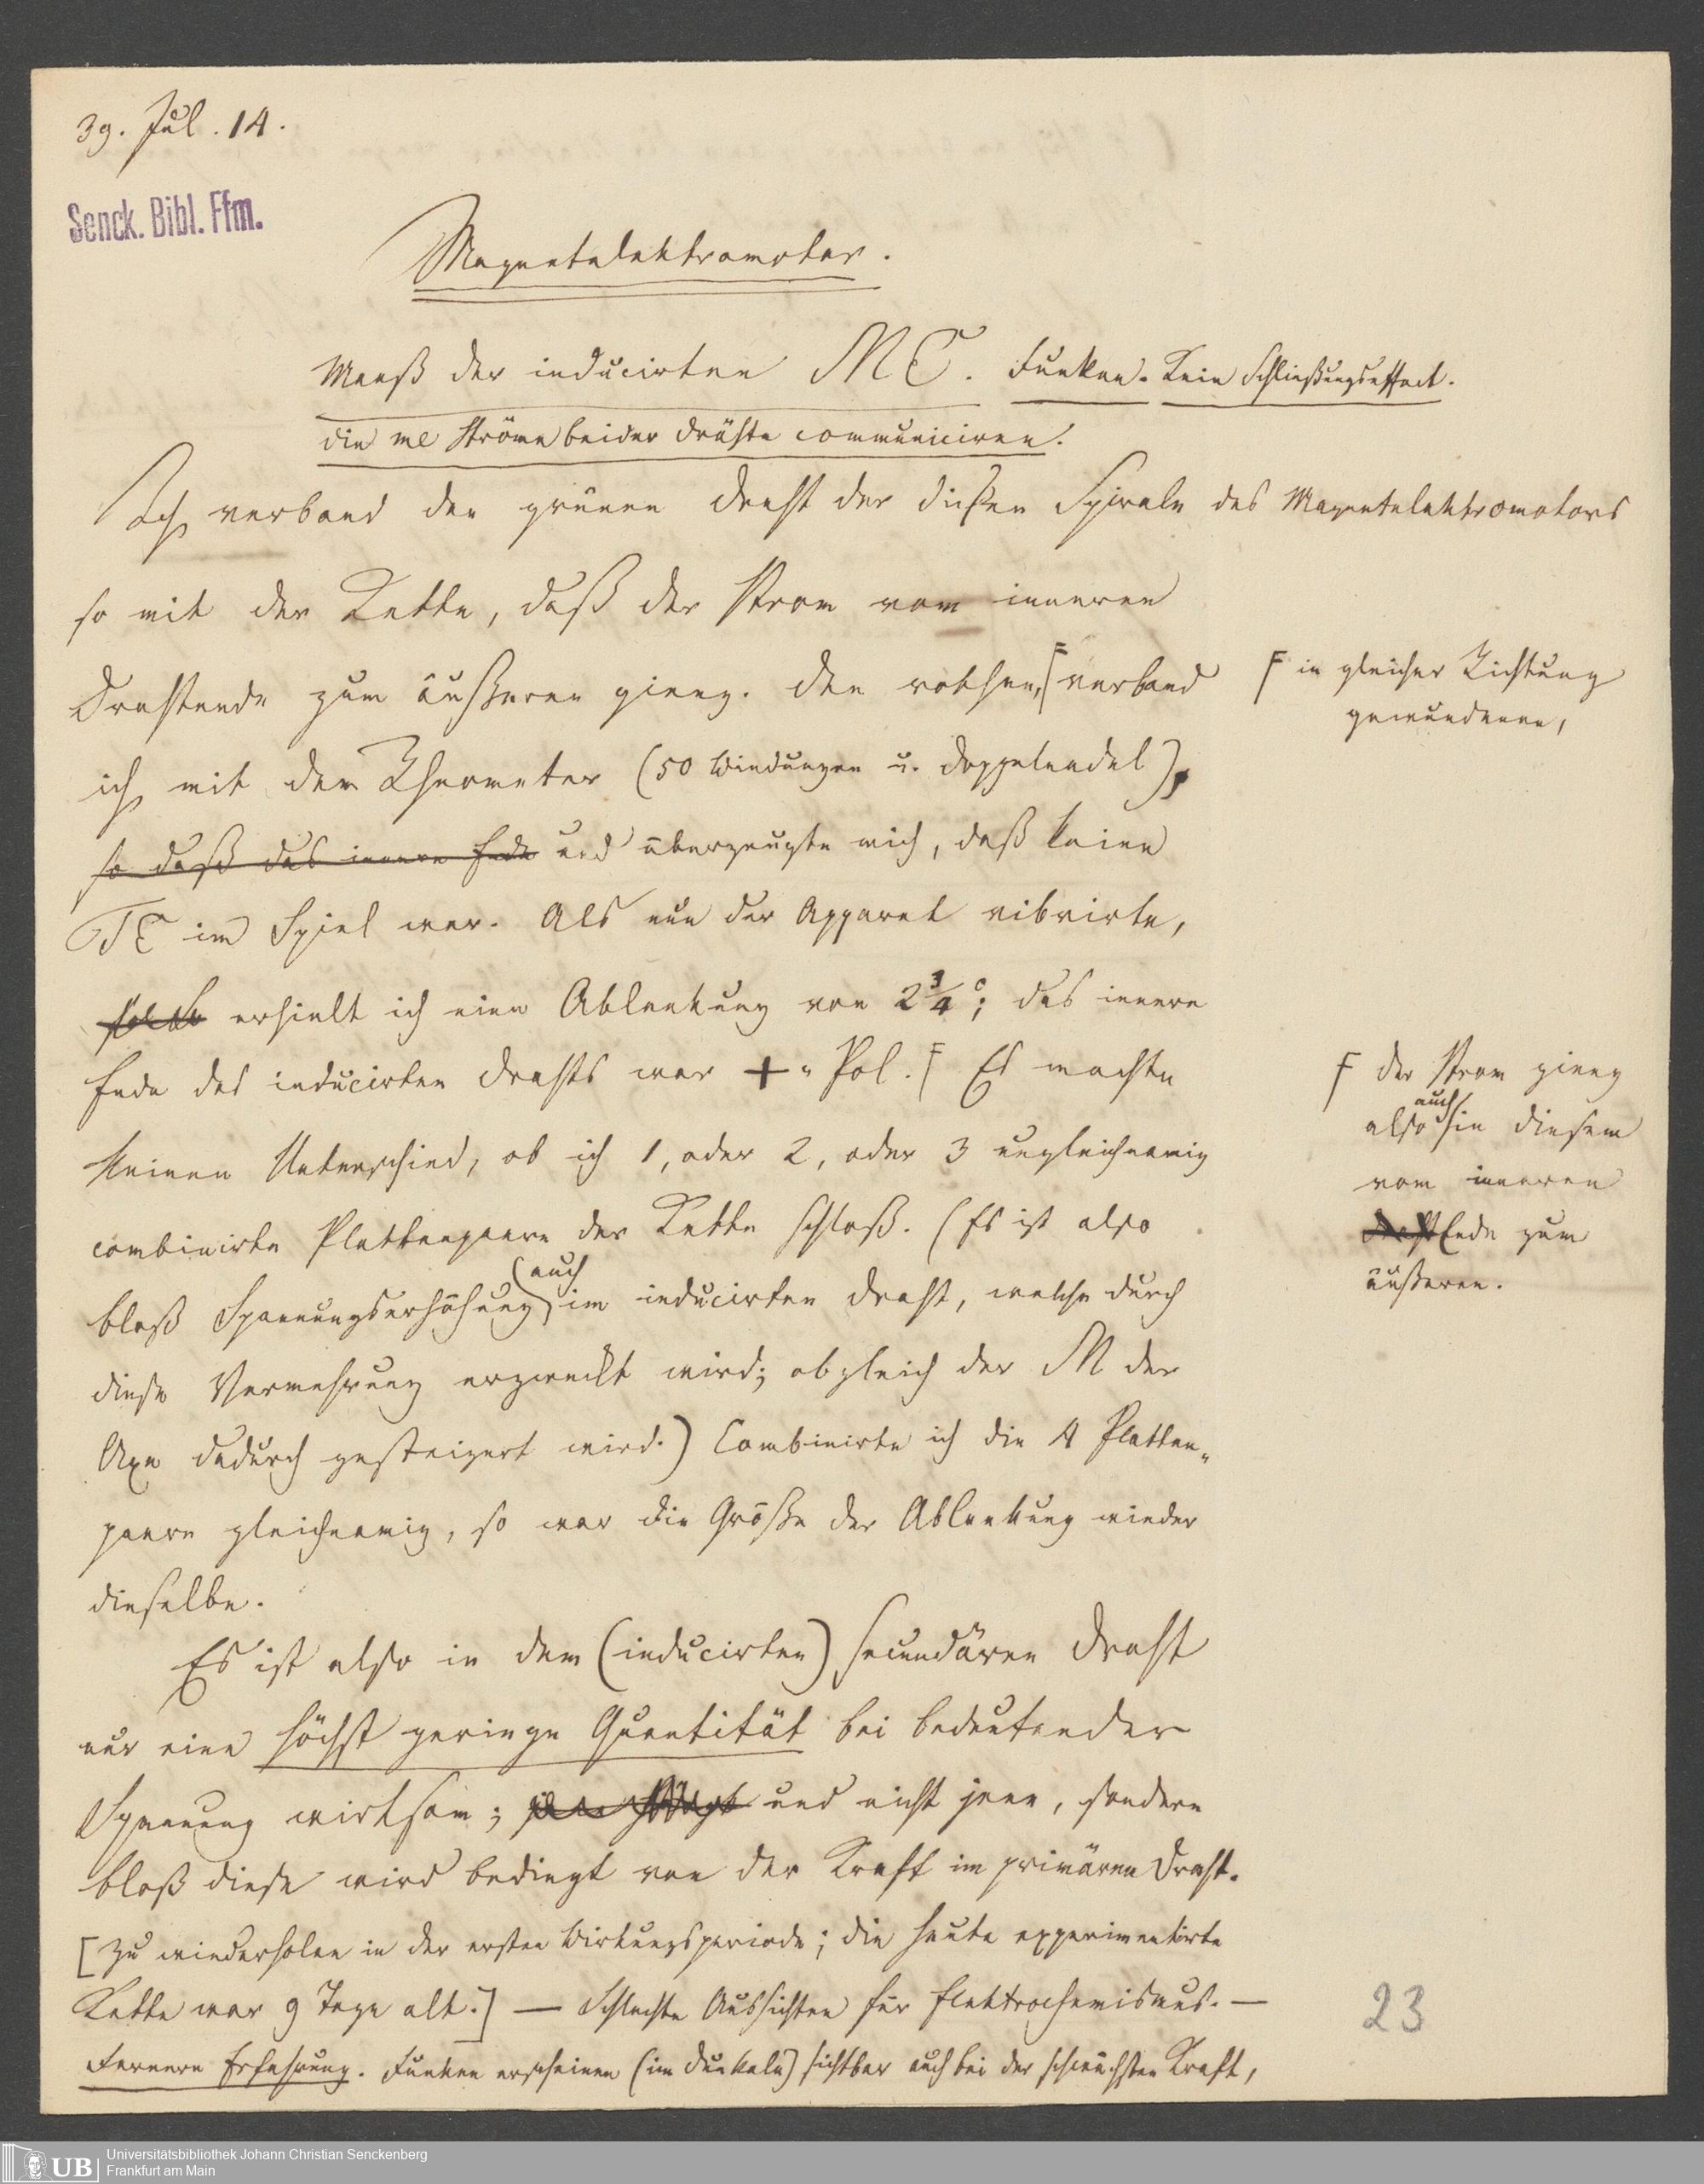 39. Jul. 14.
Senck. Bibl. Ffm.
Magnetelektromotor.
Maaß der inducirten M E. Funken. Kein Schließungseffect.
Die me Ströme beider Drähte communiciren.
Ich verband den grünen Draht der dicken Spirale des Magnetelektromotors
so mit der Kette, daß der Strom vom inneren
Drahtende zum äußeren gieng. Den rothen, verband
F in gleicher Richtung
gewundenen,
ich mit dem Rheometer (50 Windungen u. Doppelnadel),
so daß das innere Ende und überzeugte mich, daß keine
TE im Spiel war. Als nun der Apparat vibrirte,
erhielt ich eine Ablenkung von 2¾°; das innere
Ende des inducirten Drahts war +-Pol. F Es machte
F der Strom gieng
also auch in diesem
vom inneren
Ende zum
äußeren.
keinen Unterschied, ob ich 1, oder 2, oder 3 ungleichnamig
combinirte Plattenpaare der Kette schloß. (Es ist also
bloß Spannungserhöhung auch im inducirten Draht, welche durch
diese Vermehrung erzweckt wird; obgleich der M der
Axe dadurch gesteigert wird.) Combinirte ich die 4 Platten-
paare gleichnamig, so war die Größe der Ablenkung wieder
dieselbe.
Es ist also in dem (inducirten) secundären Draht
nur eine höchst geringe Quantität bei bedeutender
Spannung wirksam; und nicht jene, sondern
bloß diese wird bedingt von der Kraft im primären Draht.
[Zu wiederholen in der ersten Wirkungsperiode; die heute experimentirte
Kette war 9 Tage alt.] — Schlechte Aussichten für Elektrochemismus. —
Fernere Erfahrung. Funken erscheinen (im Dunkeln) sichtbar auch bei der schwächsten Kraft,
23
UB
Universitätsbibliothek Johann Christian Senckenberg
Frankfurt am Main